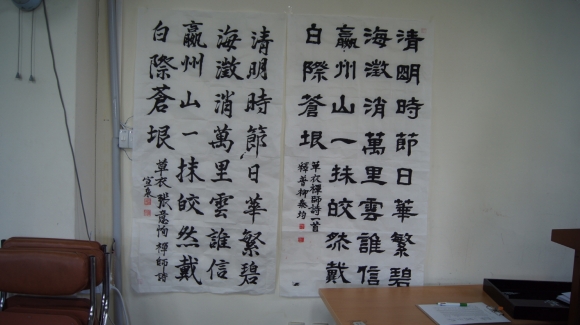 清明時節日華繁碧
海澂消萬里雲誰信
嬴州山一抹皎然戴
白際蒼垠
草衣禪師詩一首
清明時節日華繁碧
海澂消萬里雲誰信
嬴州山一抹皎然戴
白際蒼垠
草衣張意恂禪師詩